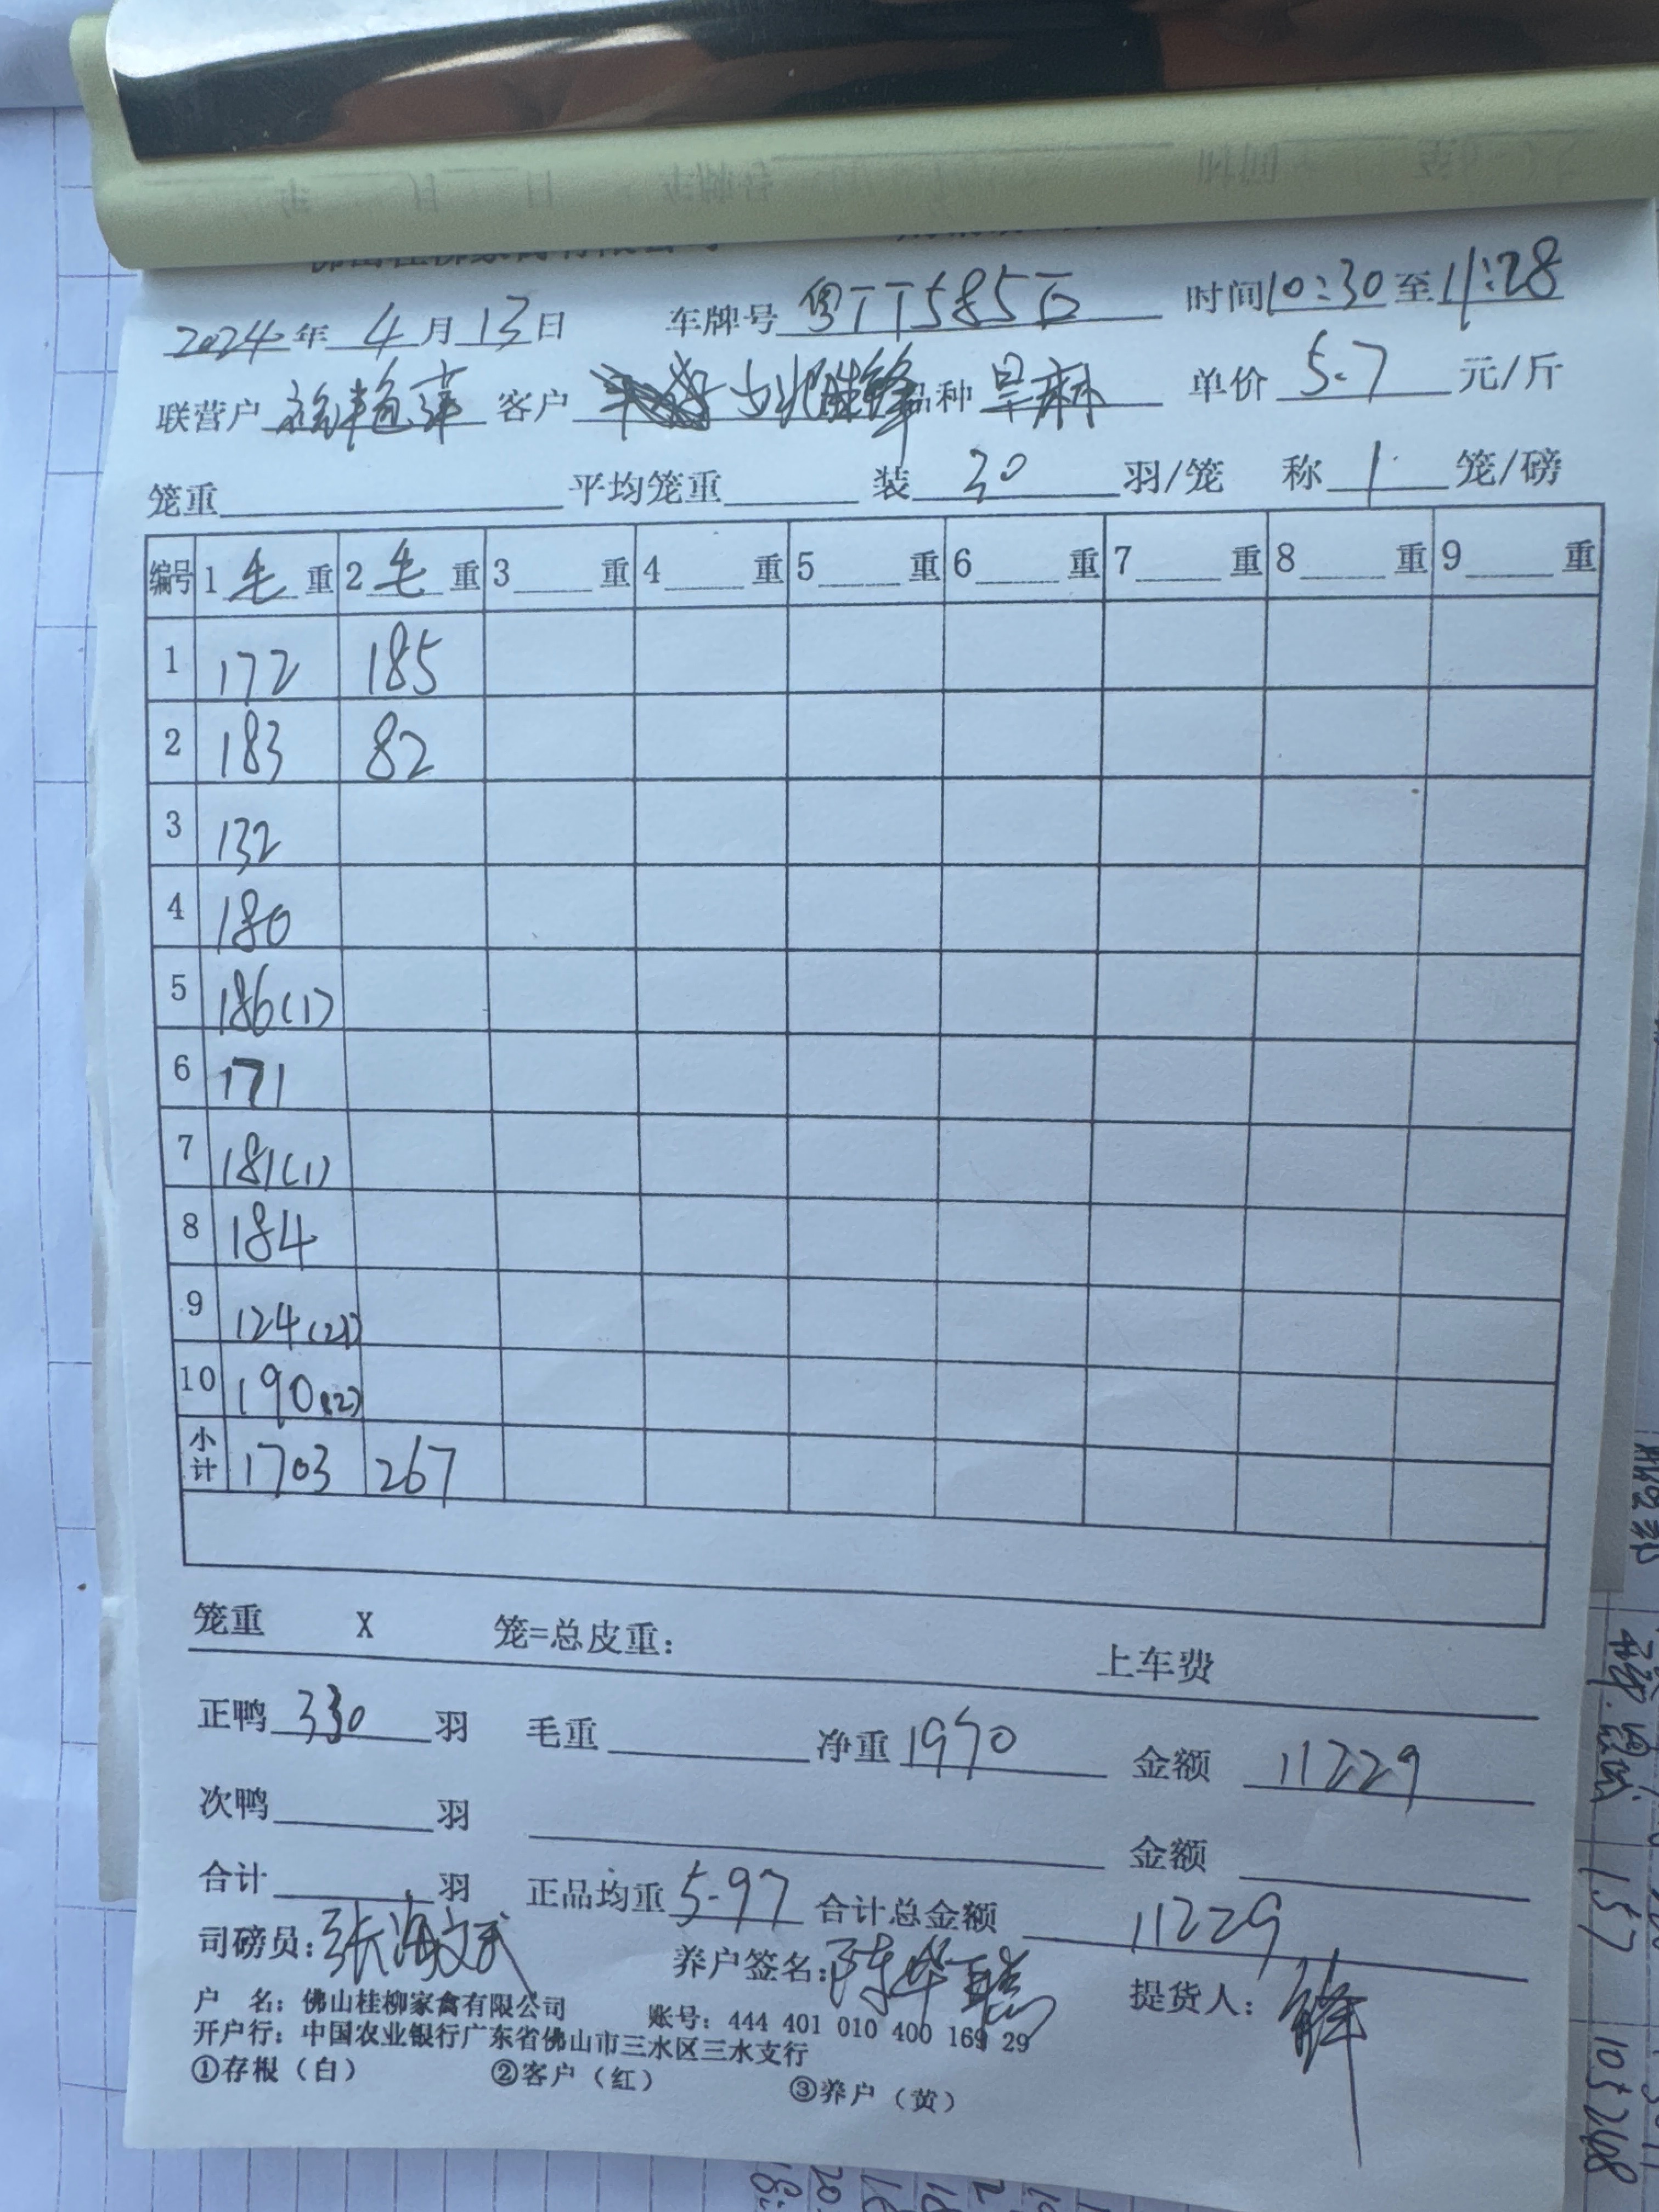 2024年 4月13日 车牌号 粤TT585 时间10:30至11:28
联营户 客户 品种 旱麻 单价 5.7 元/斤
笼重 平均笼重 装 30 羽/笼 称 1 笼/磅
编号 1 毛 重 2 毛 重 3 重 4 重 5 重 6 重 7 重 8 重 9 重
1 172 185
2 183 82
3 132
4 180
5 186(1)
6 171
7 181(1)
8 184
9 124(2)
10 190(2)
小计 1703 267
笼重 X 笼=总皮重: 上车费
正鸭 330 羽 毛重 净重 1970 金额 11229
次鸭 羽 金额
合计 羽 正品均重 5.97 合计总金额 11229
司磅员: 张海文 养户签名: 陈华聪 提货人: 锋
户 名: 佛山桂柳家禽有限公司 账号: 444 401 010 400 169 29
开户行: 中国农业银行广东省佛山市三水区三水支行
①存根（白） ②客户（红） ③养户（黄）